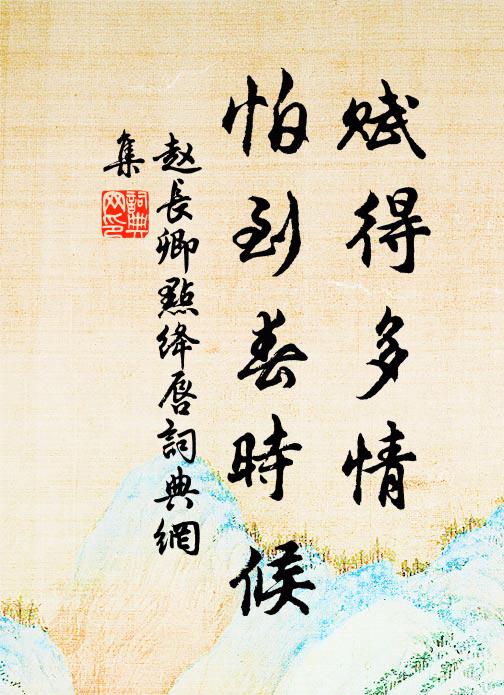 赋得多情
怕到春時候
赵長卿點绛唇詞典網
集
詞典网印